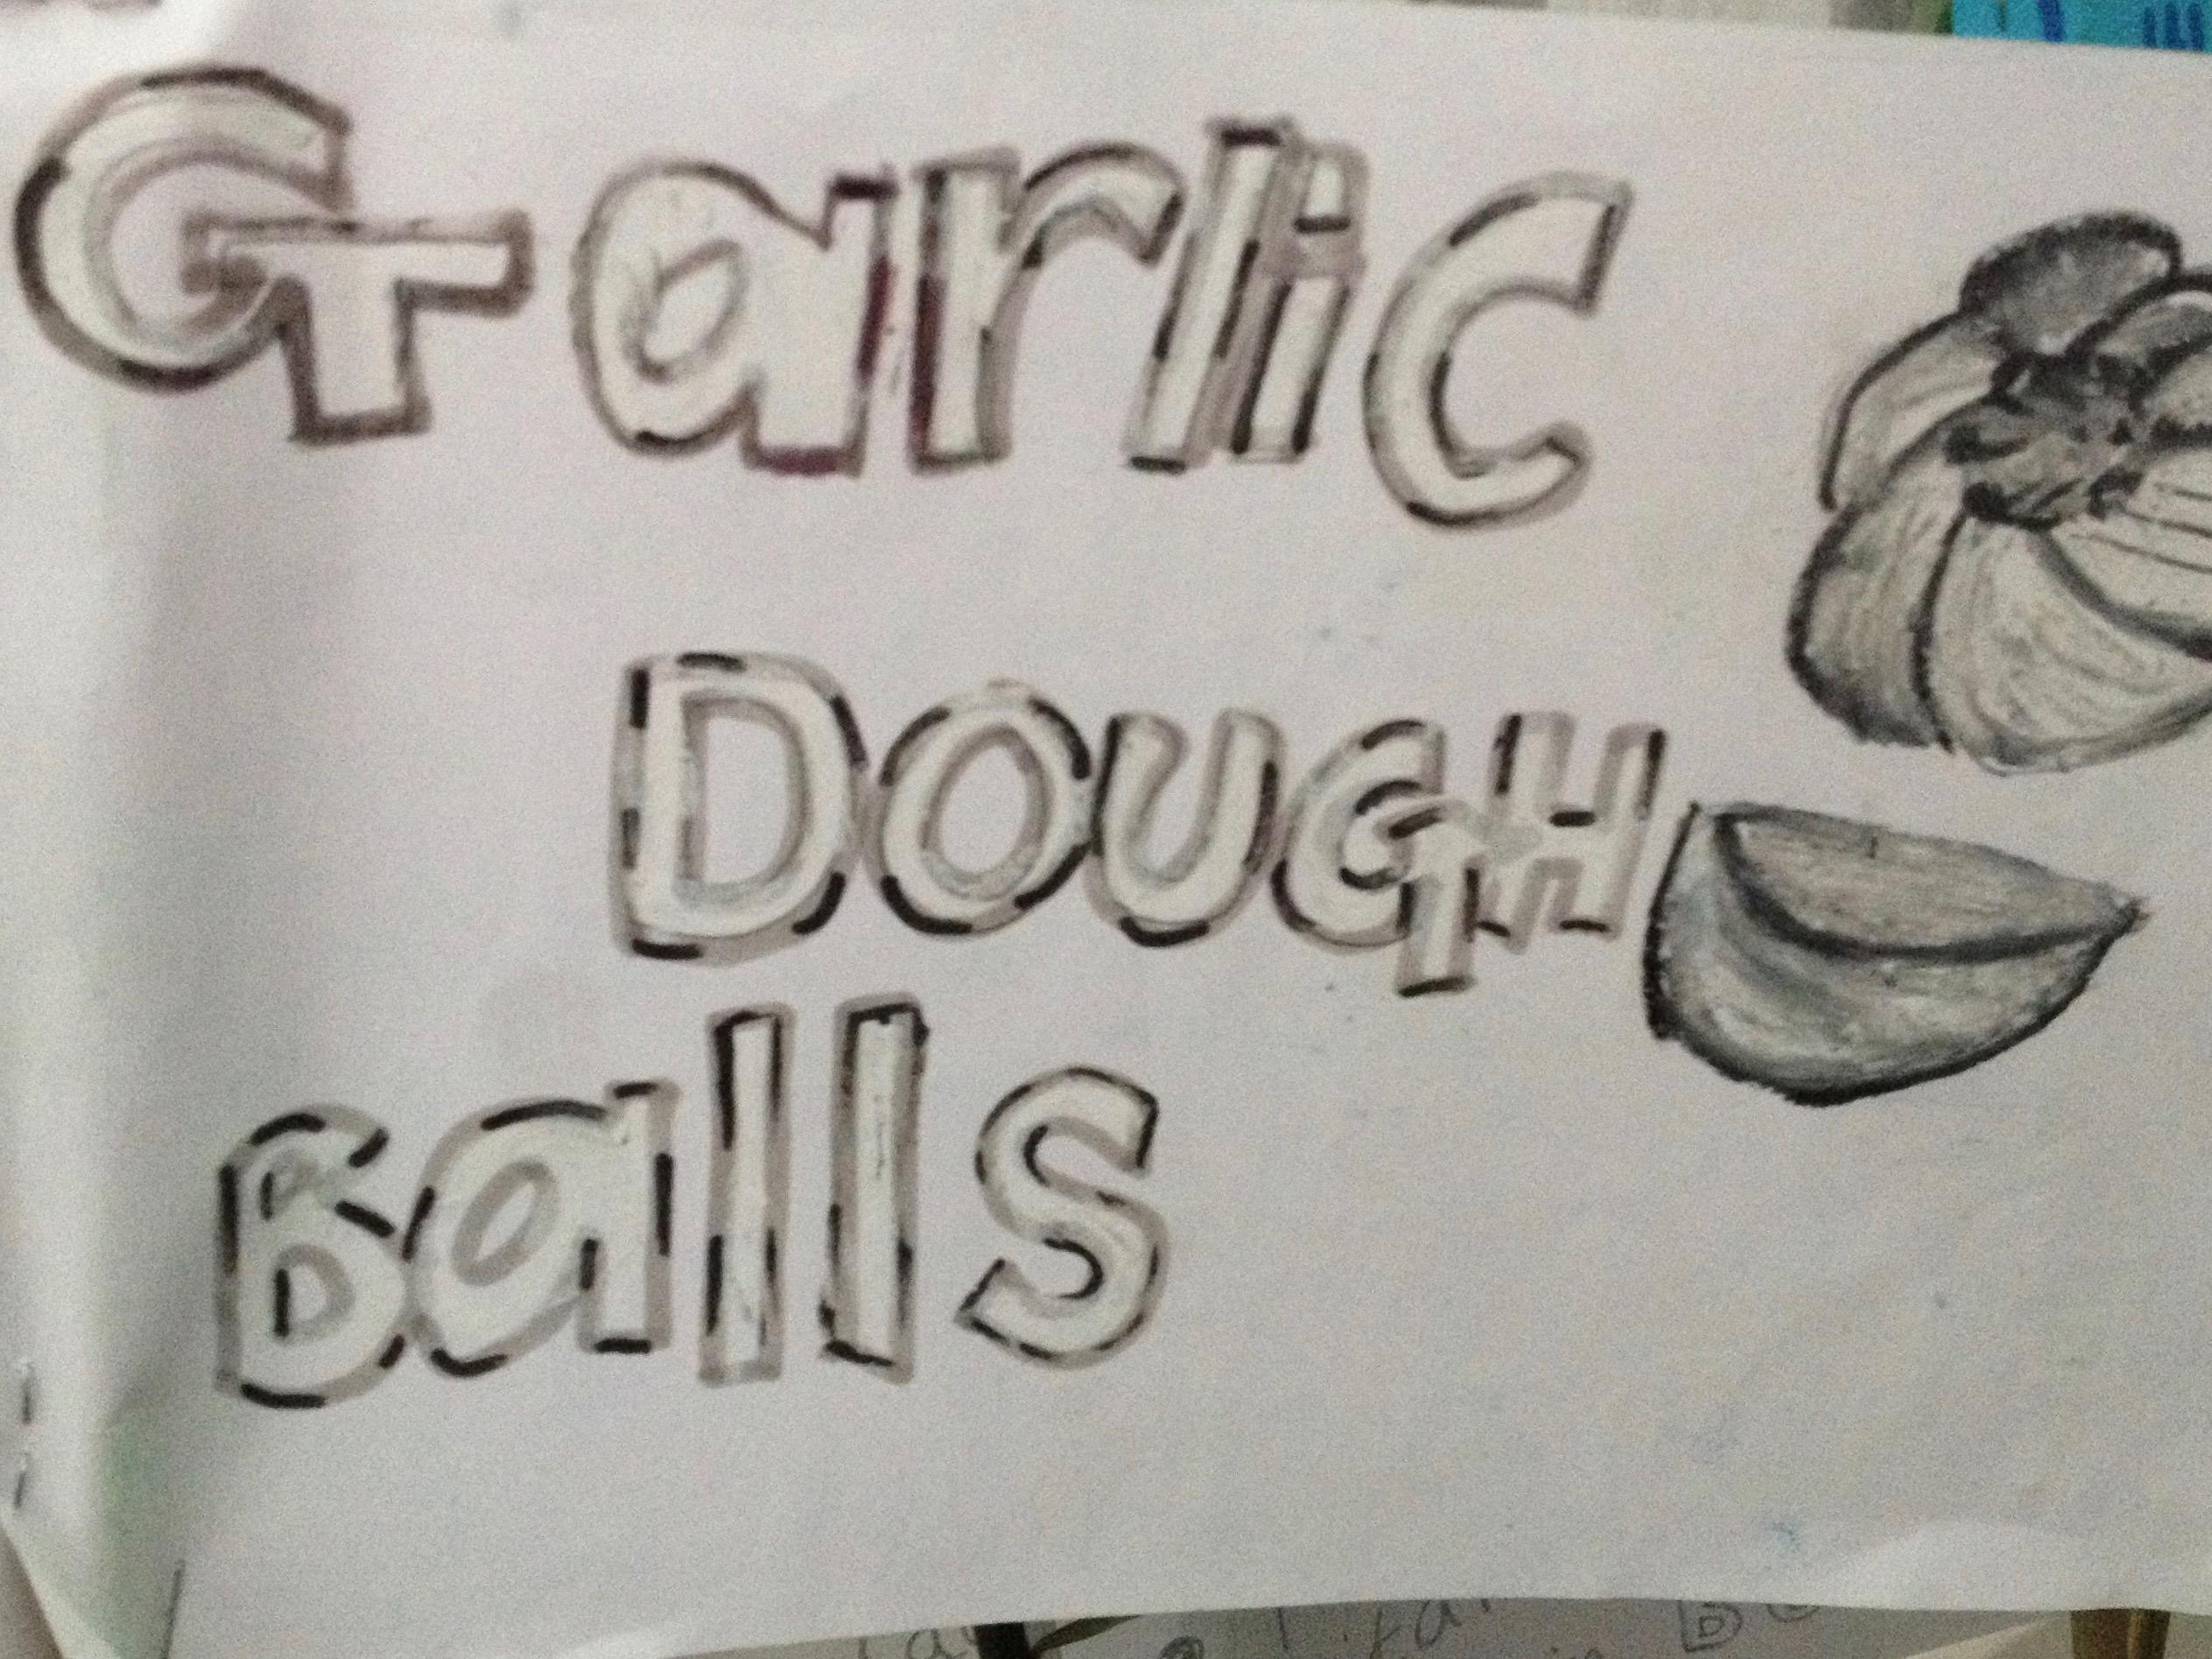 Garlic
DOUGH
Balls